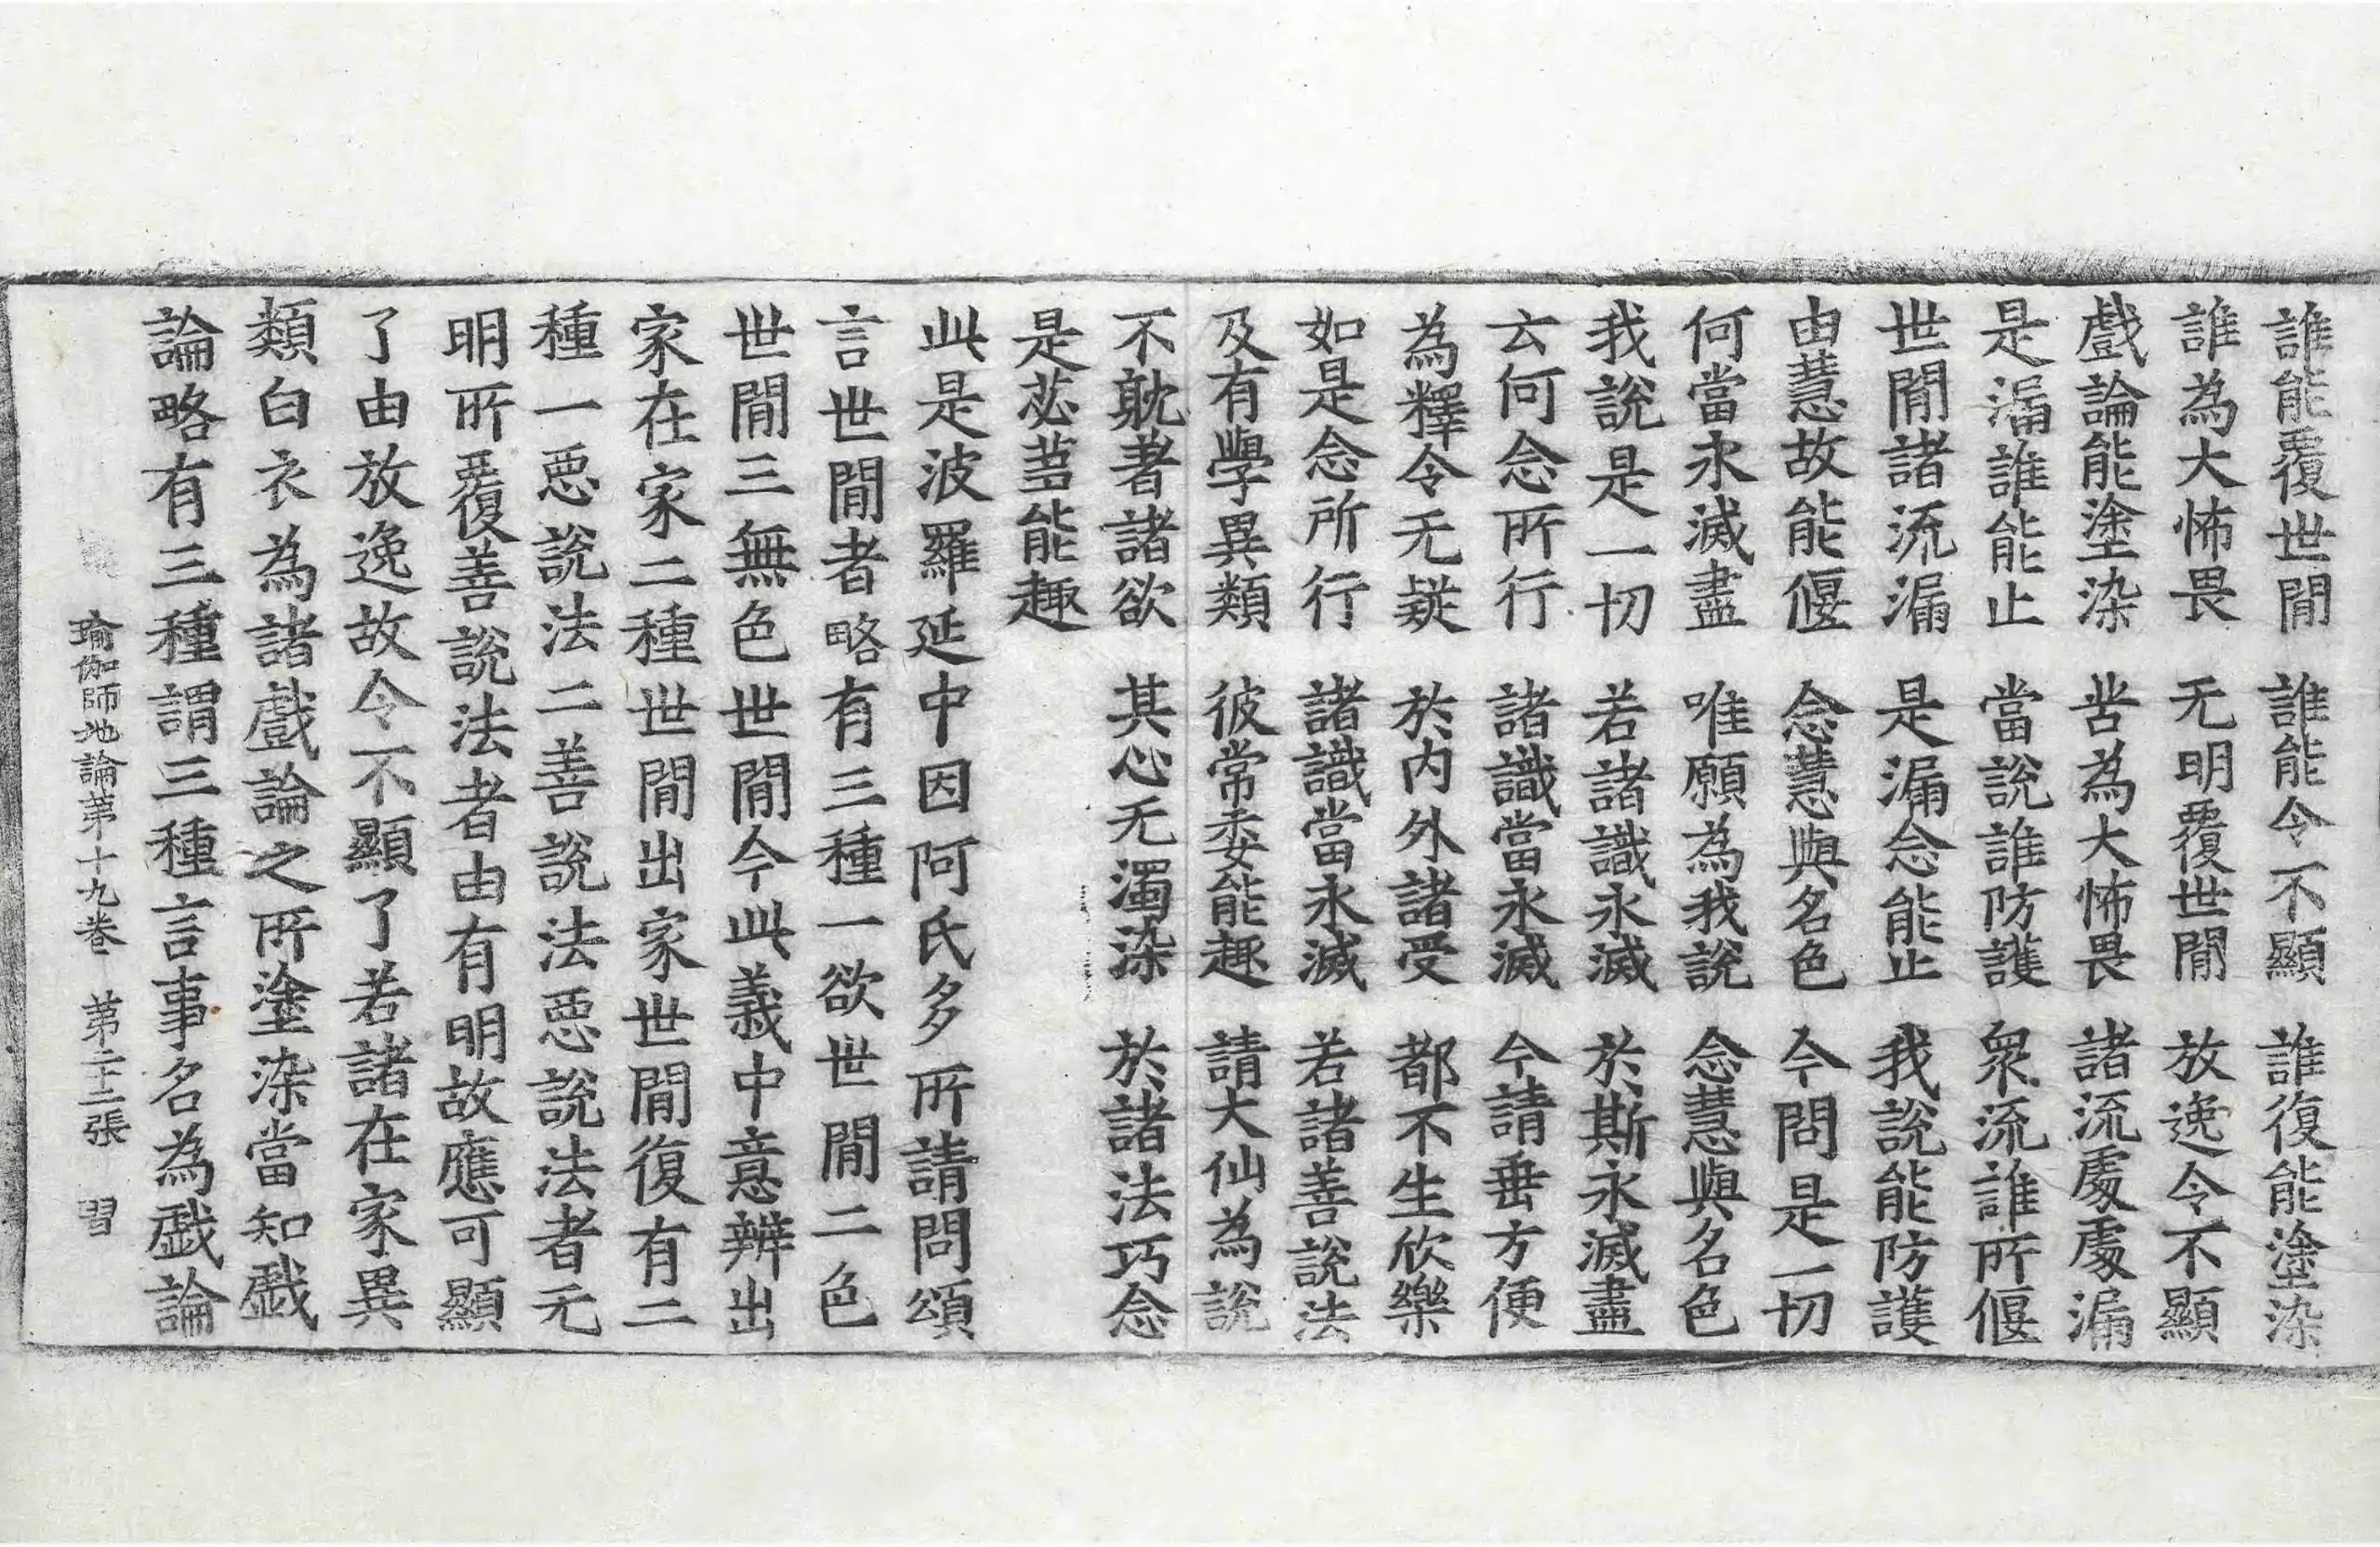 誰能覆世閒　誰能令不顯　誰復能塗染
誰為大怖畏　无明覆世閒　放逸令不顯
戲論能塗染　苦為大怖畏　諸流處處漏
是漏誰能止　當說誰防護　衆流誰所偃
世閒諸流漏　是漏念能止　我說能防護
由慧故能偃　念慧與名色　今問是一切
何當永滅盡　唯願為我說　念慧與名色
我說是一切　若諸識永滅　於斯永滅盡
云何念所行　諸識當永滅　今請垂方便
為釋令无疑　於内外諸受　都不生欣樂
如是念所行　諸識當永滅　若諸善說法
及有學異類　彼常委能趣　請大仙為說
不躭著諸欲　其心无濁染　於諸法巧念
是苾蒭能趣
此是波羅延中因阿氏多所請問頌
言世閒者略有三種一欲世閒二色
世閒三無色世閒今此義中意辨出
家在家二種世閒出家世閒復有二
種一惡說法二善說法惡說法者无
明所覆善說法者由有明故應可顯
了由放逸故令不顯了若諸在家異
類白衣為諸戲論之所塗染當知戱
論略有三種謂三種言事名為戱論
瑜伽師地論苐十九卷　苐二十二張　習